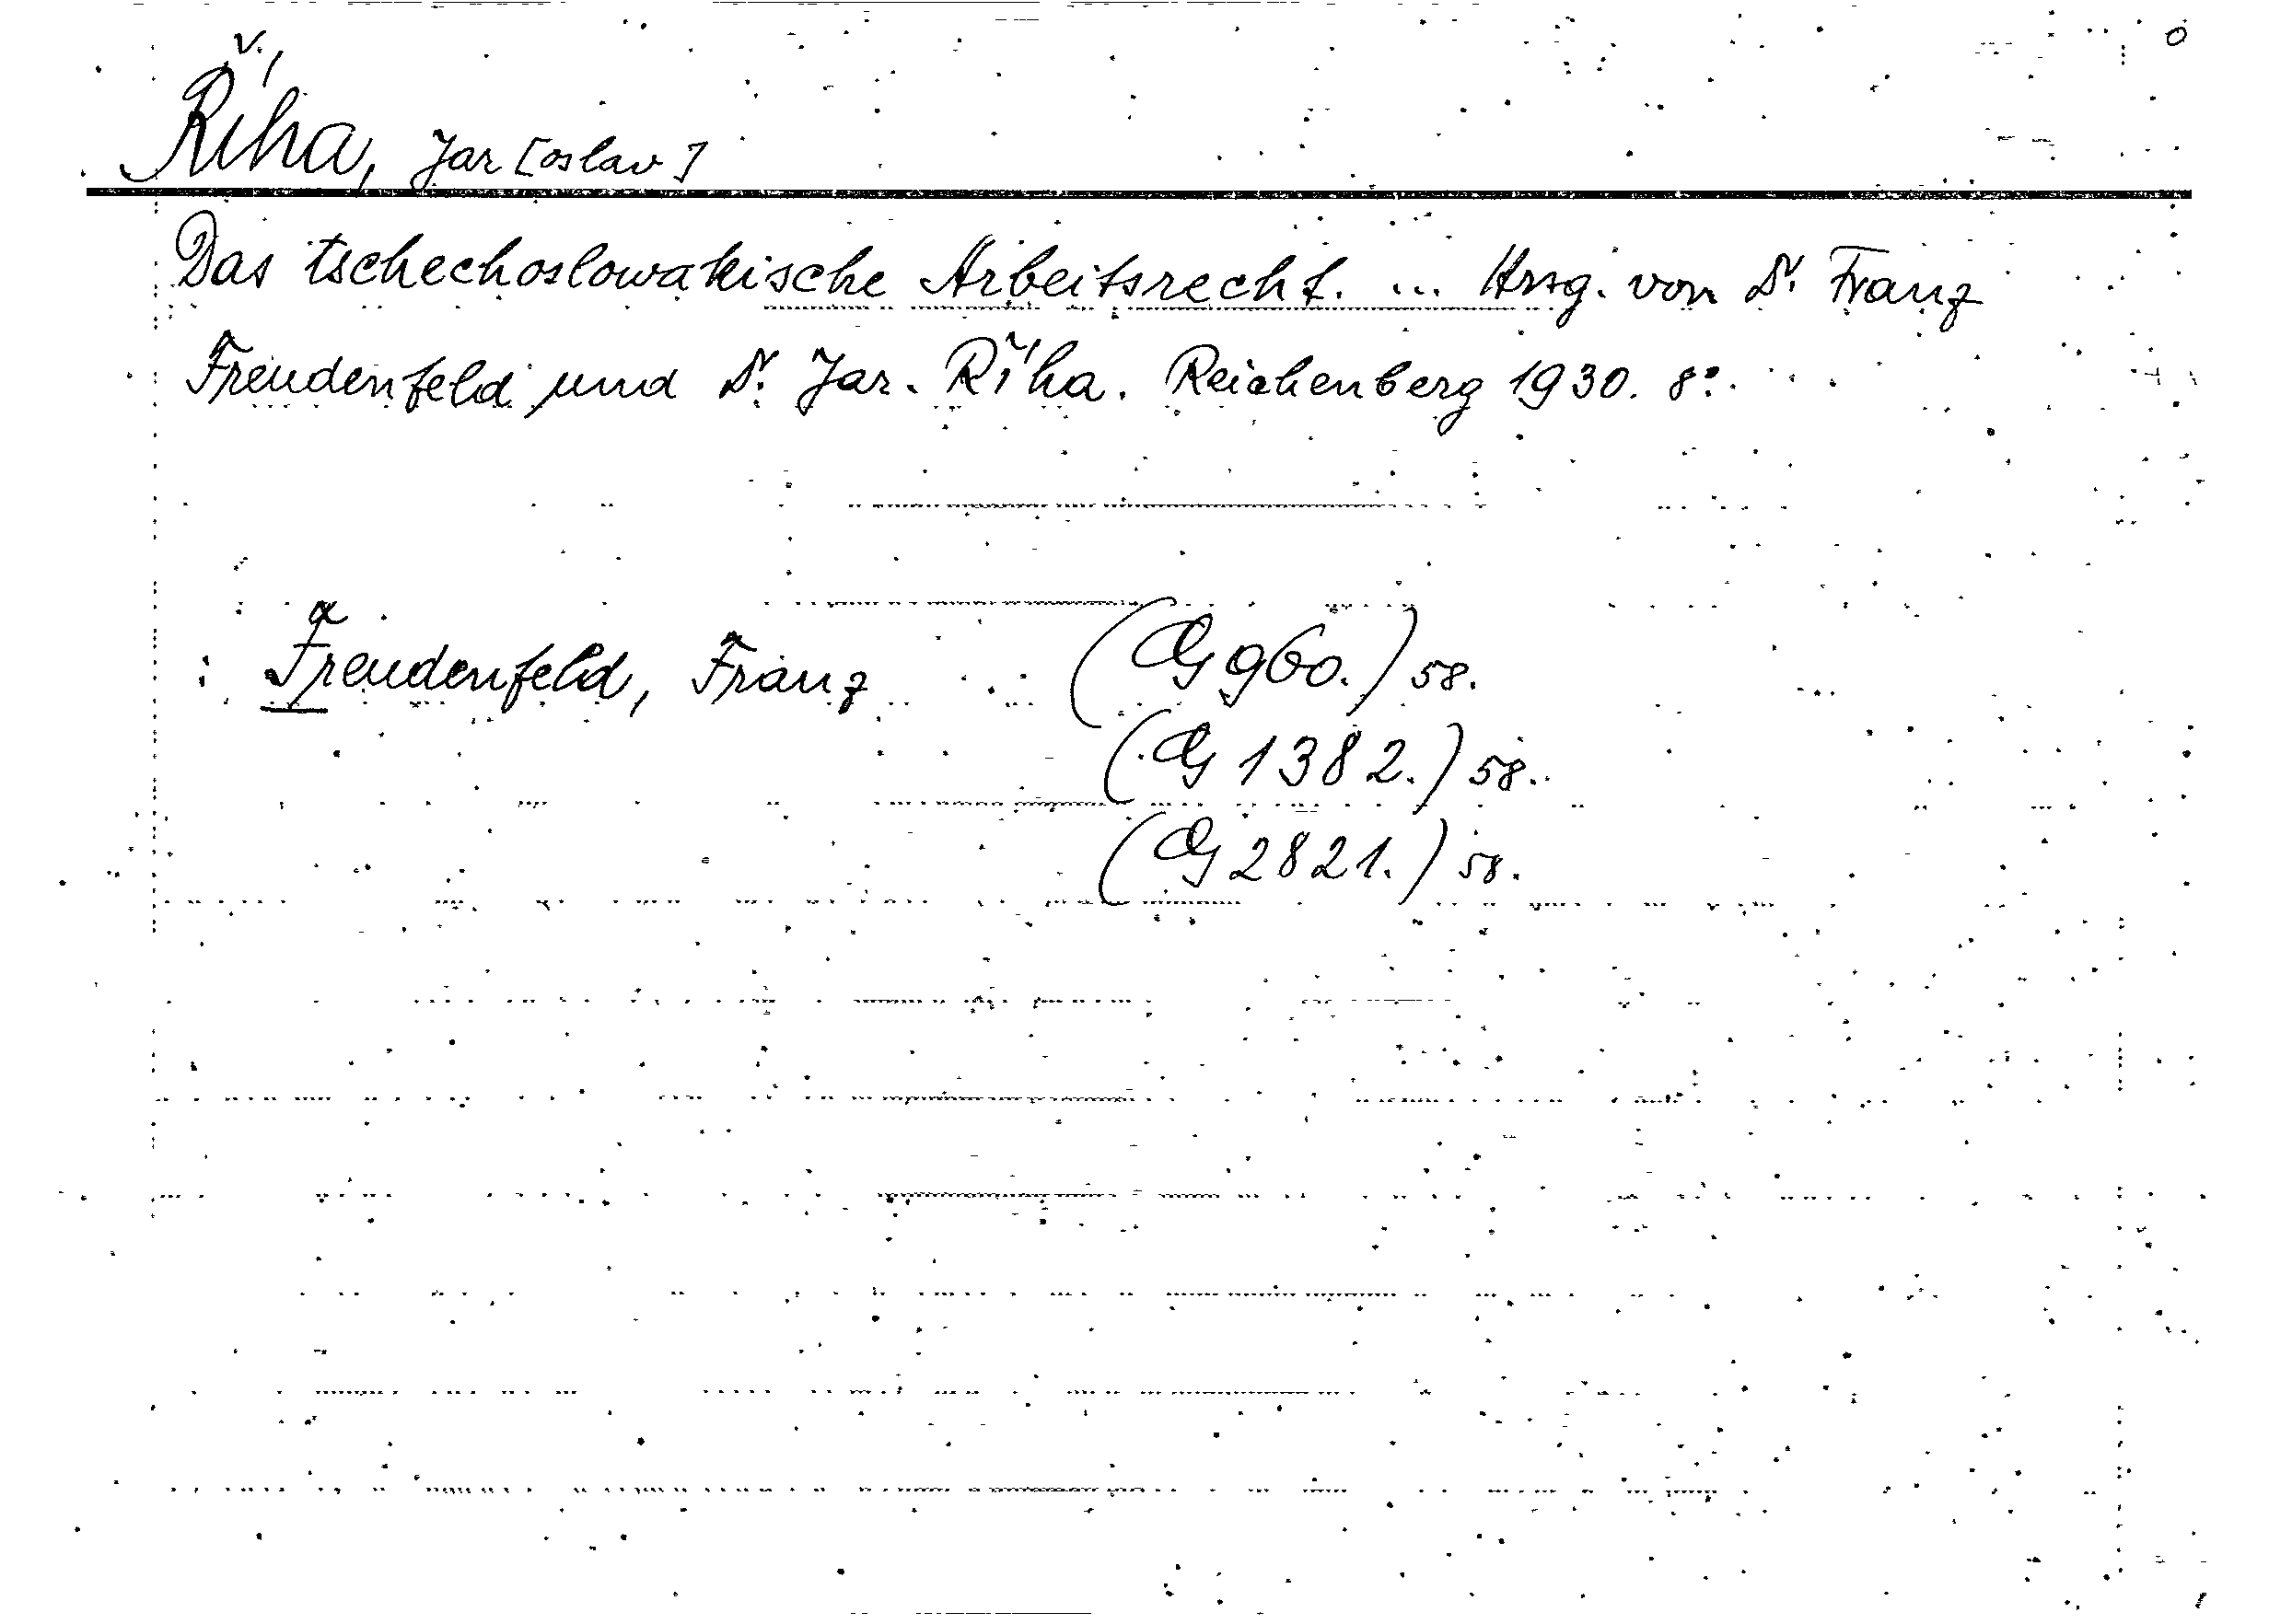 Říha, Jar[oslav]
Das tschechoslowakische Arbeitsrecht. ... Hrsg. von Dr. Franz
Freudenfeld und Dr. Jar. Říha. Reichenberg 1930. 8°.
: Freudenfeld, Franz (G 960.) 58.
(G 1382.) 58.
(G 2821.) 58.